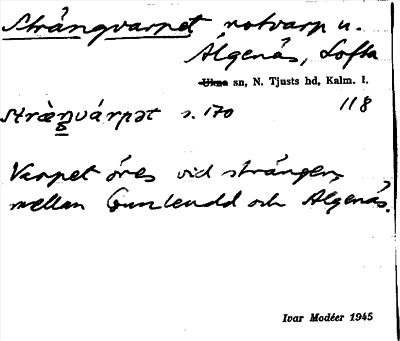 Strångvarpet notvarp u.
Älgenäs, Lofta
Ukna sn, N. Tjusts hd, Kalm. l.
118
s. 170
Varpet öres vid strången
mellan och Älgenäs.
Ivar Modéer 1945